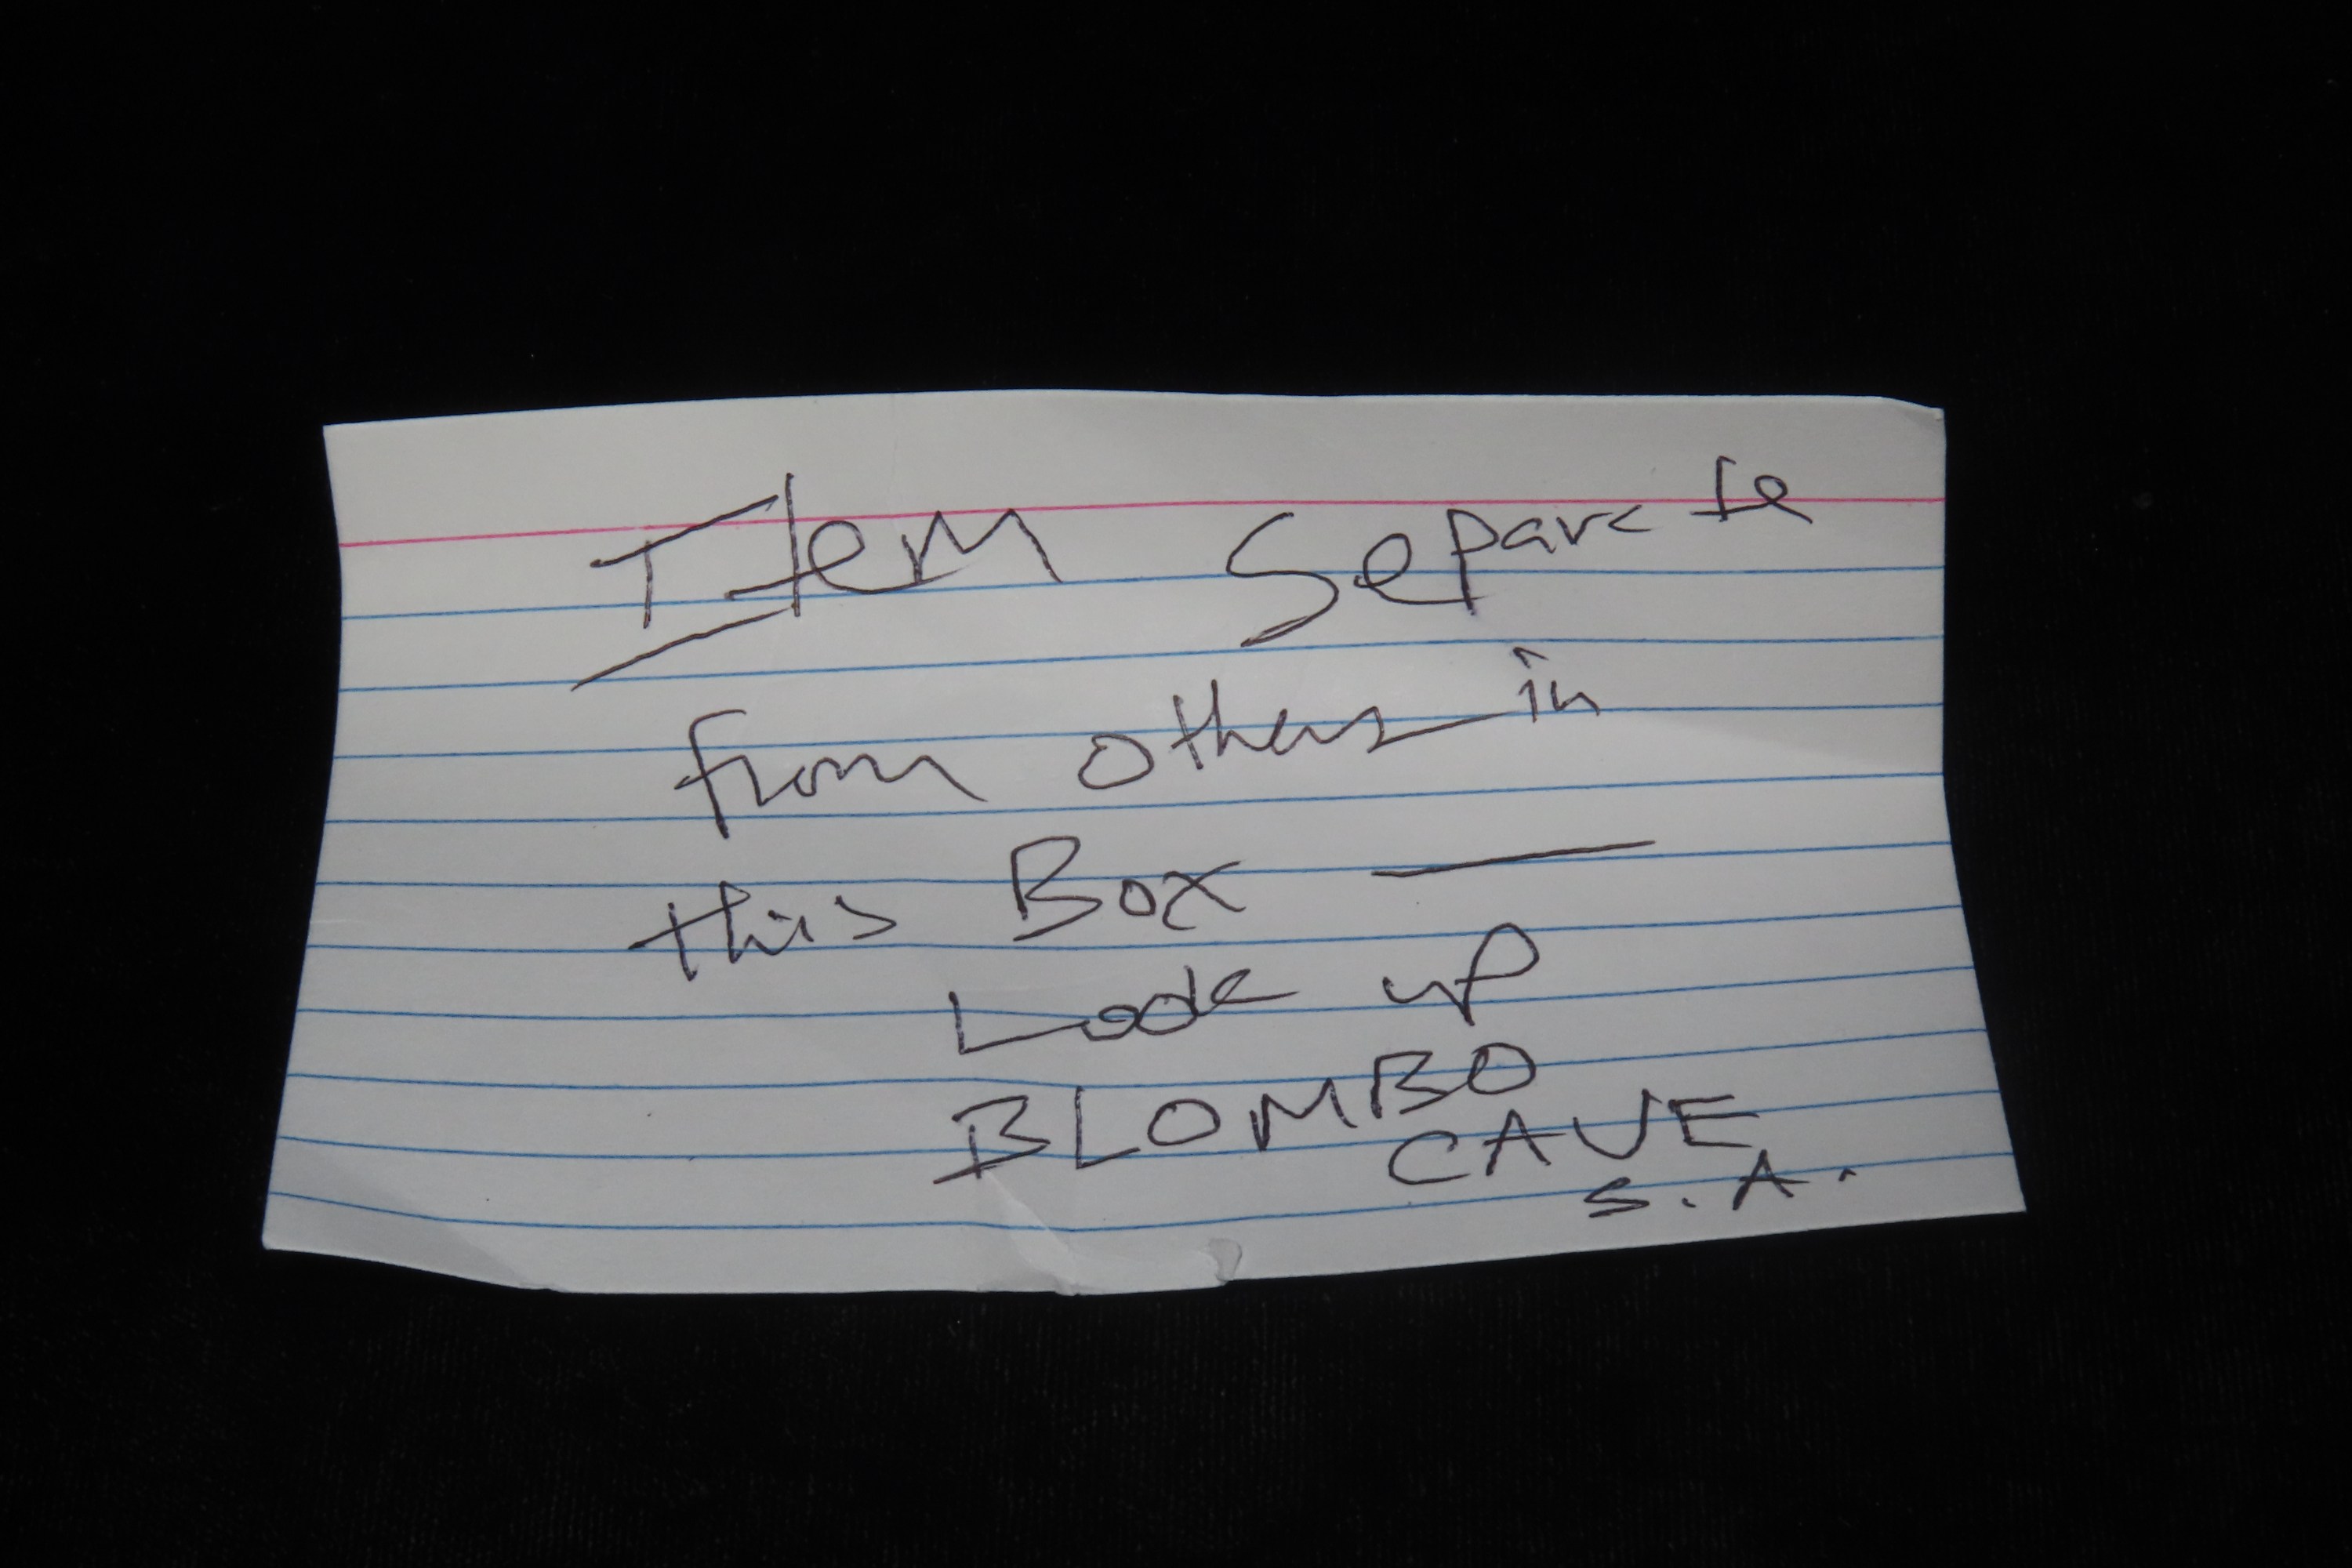 Item Separate
from others in
this Box —
Look up
BLOMBO
CAVE
S.A.